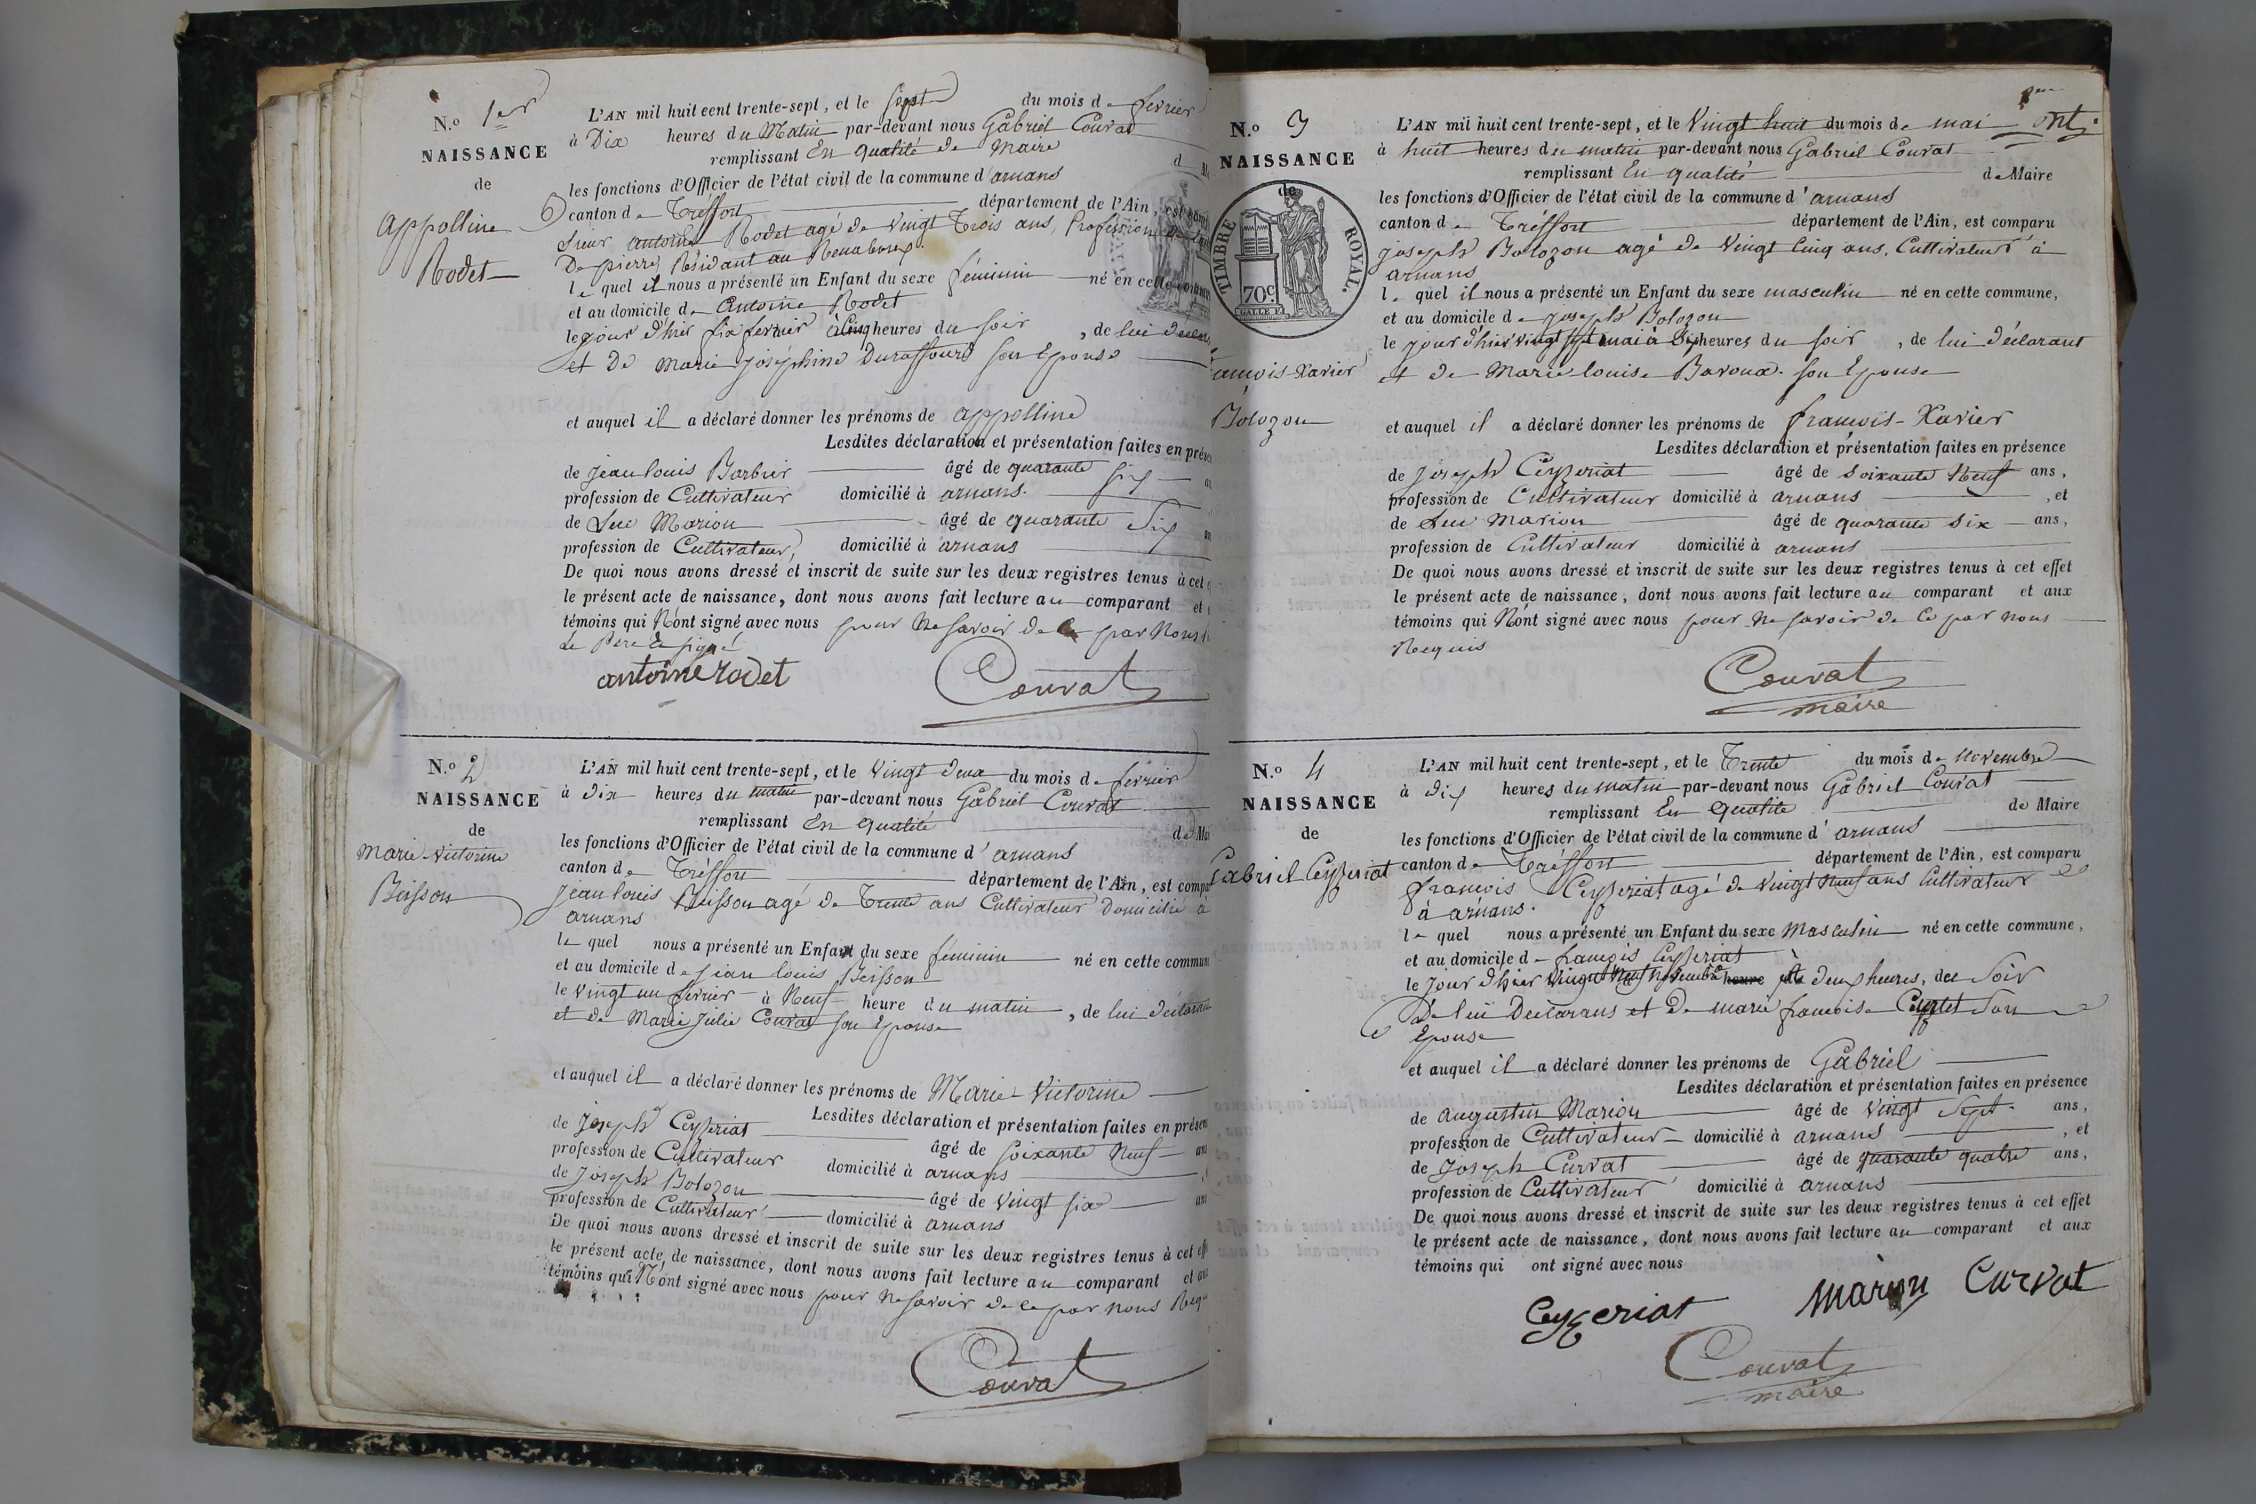 N.o 1er
NAISSANCE
de
Appolline
Rodet
L'AN mil huit cent trente-sept, et le sept du mois de fevrier
à Dix heures du Matin par-devant nous Gabriel Couvat
remplissant En qualité de Maire
les fonctions d'Officier de l'état civil de la commune d'arnans
canton de Tréffort département de l'Ain, est
Sieur antoine Rodet agé de Vingt Trois ans, Profession
De pierres Résidant au
le quel il nous a présenté un Enfant du sexe féminin né en cette
et au domicile de Antoine Rodet
le jour d'hier six fevrier à Cinq heures du soir, de lui
et de Marie joséphine Duraffourd son Epouse
et auquel il a déclaré donner les prénoms de appolline
Lesdites déclaration et présentation faites en
de jean louis Barbier âgé de quarante six
profession de Cultivateur domicilié à arnans.
de Luc Marion âgé de quarante Six
profession de Cultivateur, domicilié à arnans
De quoi nous avons dressé et inscrit de suite sur les deux registres tenus à cet
le présent acte de naissance, dont nous avons fait lecture au comparant et
témoins qui N'ont signé avec nous pour Ne savoir de Ce par Nous
Le Père a signé
antoine rodet
Couvat
N.o 2
NAISSANCE
de
Marie-Victorine
Buisson
L'AN mil huit cent trente-sept, et le Vingt deux du mois de fevrier
à dix heures du matin par-devant nous Gabriel Couvat
remplissant En qualité de
les fonctions d'Officier de l'état civil de la commune d'arnans
canton de Tréffort département de l'Ain, est
jean louis Buisson agé de Trente ans Cultivateur Domicilié à
arnans
le quel nous a présenté un Enfant du sexe féminin né en cette
et au domicile de jean louis Buisson
le Vingt un fevrier à Neuf heure du matin, de lui
et de Marie Julie Couvat son Epouse
et auquel il a déclaré donner les prénoms de Marie Victorine
Lesdites déclaration et présentation faites en
de Joseph Ceyzeriat âgé de soixante Neuf
profession de Cultivateur domicilié à arnans
de Joseph Bolozon âgé de Vingt six
profession de Cultivateur domicilié à arnans
De quoi nous avons dressé et inscrit de suite sur les deux registres tenus à cet
le présent acte de naissance, dont nous avons fait lecture au comparant et
témoins qui N'ont signé avec nous pour Ne savoir de ce par nous
Couvat
N.o 3
NAISSANCE
de
TIMBRE ROYAL.
70c.
françois-Xavier
Bolozon
L'AN mil huit cent trente-sept, et le Vingt huit du mois de mai
à huit heures du matin par-devant nous Gabriel Couvat
remplissant En qualité de Maire
les fonctions d'Officier de l'état civil de la commune d'arnans
canton de Tréffort département de l'Ain, est comparu
joseph Bolozon agé de Vingt Cinq ans, Cultivateur à
arnans
le quel il nous a présenté un Enfant du sexe masculin né en cette commune,
et au domicile de joseph Bolozon
le jour d'hier vingt sept mai à Dix heures du soir, de lui déclarant
et de Marie louise Baroux son Epouse
et auquel il a déclaré donner les prénoms de françois-Xavier
Lesdites déclaration et présentation faites en présence
de joseph Ceyzeriat âgé de soixante Neuf ans,
profession de Cultivateur domicilié à arnans, et
de Luc Marion âgé de quarante six ans,
profession de Cultivateur domicilié à arnans
De quoi nous avons dressé et inscrit de suite sur les deux registres tenus à cet effet
le présent acte de naissance, dont nous avons fait lecture au comparant et aux
témoins qui N'ont signé avec nous pour Ne savoir de Ce par nous
Requis
Couvat
maire
N.o 4
NAISSANCE
de
Gabriel Ceyzeriat
L'AN mil huit cent trente-sept, et le Trente du mois de Novembre
à dix heures du matin par-devant nous Gabriel Couvat
remplissant En qualité de Maire
les fonctions d'Officier de l'état civil de la commune d'arnans
canton de Tréffort département de l'Ain, est comparu
françois Ceyzeriat agé de vingt Neuf ans Cultivateur
à arnans.
le quel nous a présenté un Enfant du sexe Masculin né en cette commune,
et au domicile de françois Ceyzeriat
le jour d'hier vingt Neuf Novembre heure à deux heures, du Soir
De lui Declarans et De marie francoise son
Epouse
et auquel il a déclaré donner les prénoms de Gabriel
Lesdites déclaration et présentation faites en présence
de augustin Marion âgé de vingt Sept ans,
profession de Cultivateur domicilié à arnans, et
de Joseph Curvat âgé de quarante quatre ans,
profession de Cultivateur domicilié à arnans
De quoi nous avons dressé et inscrit de suite sur les deux registres tenus à cet effet
le présent acte de naissance, dont nous avons fait lecture au comparant et aux
témoins qui ont signé avec nous
Ceyzeriat Marion Curvat
Couvat
maire